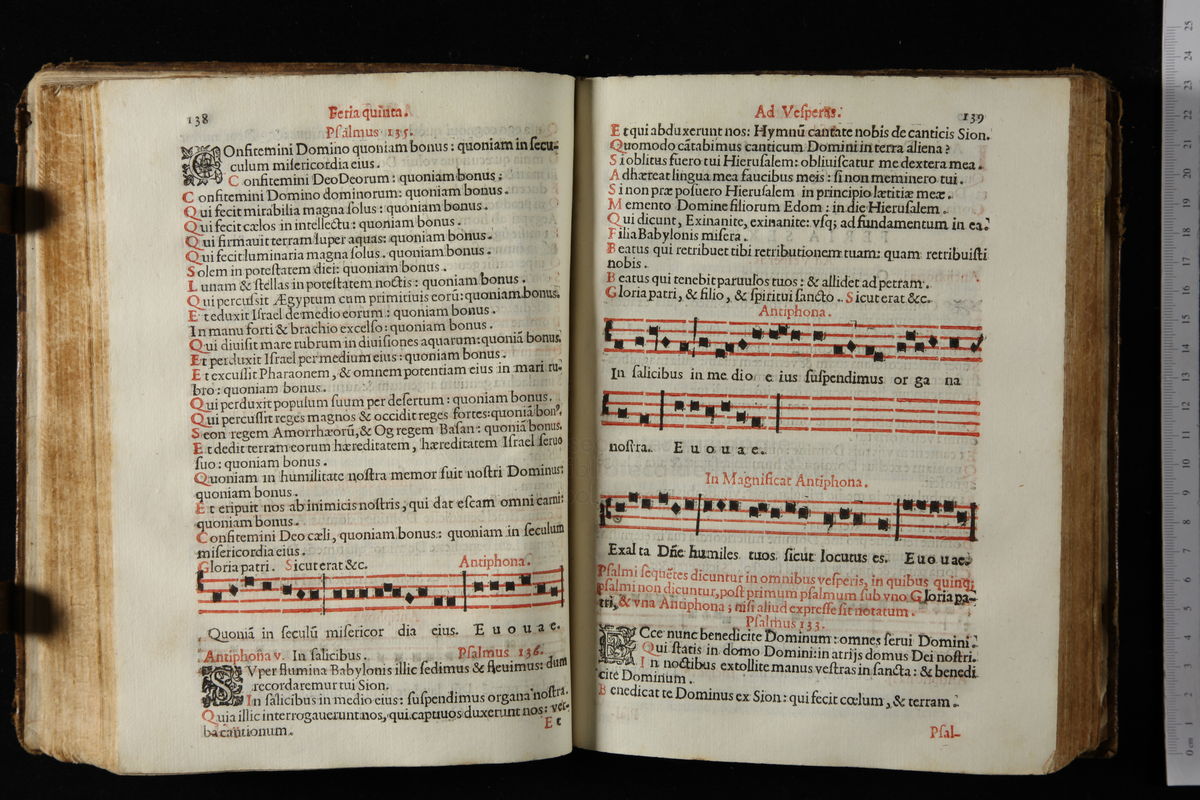 138
Feria quinta.
Psalmus 135.
COnfitemini Domino quoniam bonus: quoniam in secu-
culum misericordia eius.
Confitemini Deo Deorum: quoniam bonus.
Confitemini Domino dominorum: quoniam bonus.
Qui fecit mirabilia magna solus: quoniam bonus.
Qui fecit cælos in intellectu: quoniam bonus.
Qui firmauit terram super aquas: quoniam bonus.
Qui fecit luminaria magna solus. quoniam bonus.
Solem in potestatem diei: quoniam bonus.
Lunam & stellas in potestatem noctis: quoniam bonus.
Qui percussit Ægyptum cum primitiuis eorū: quoniam bonus.
Et eduxit Israel de medio eorum: quoniam bonus.
In manu forti & brachio excelso: quoniam bonus.
Qui diuisit mare rubrum in diuisiones aquarum: quoniā bonus.
Et perduxit Israel per medium eius: quoniam bonus.
Et excussit Pharaonem, & omnem potentiam eius in mari ru-
bro: quoniam bonus.
Qui perduxit populum suum per desertum: quoniam bonus.
Qui percussit reges magnos & occidit reges fortes: quoniā bonꝰ.
Seon regem Amorrhæorū, & Og regem Basan: quoniā bonus.
Et dedit terram eorum hæreditatem, hæreditatem Israel seruo
suo: quoniam bonus.
Quoniam in humilitate nostra memor fuit nostri Dominus:
quoniam bonus.
Et eripuit nos ab inimicis nostris, qui dat escam omni carni:
quoniam bonus.
Confitemini Deo cæli, quoniam bonus: quoniam in seculum
misericordia eius.
Gloria patri. Sicut erat &c. Antiphona.
Quoniā in seculū misericor dia eius. E u o u a e.
Antiphona v. In salicibus. Psalmus 136.
SVper flumina Babylonis illic sedimus & fleuimus: dum
recordaremur tui Sion.
In salicibus in medio eius: suspendimus organa nostra.
Quia illic interrogauerunt nos, qui captiuos duxerunt nos: ver-
ba cantionum.
Et
Ad Vesperas.
139
Et qui abduxerunt nos: Hymnū cantate nobis de canticis Sion.
Quomodo cātabimus canticum Domini in terra aliena?
Si oblitus fuero tui Hierusalem: obliuiscatur me dextera mea.
Adhæreat lingua mea faucibus meis: si non meminero tui.
Si non præposuero Hierusalem in principio lætitiæ meæ.
Memento Domine filiorum Edom: in die Hierusalem.
Qui dicunt, Exinanite, exinanite: vsq; ad fundamentum in ea.
Filia Babylonis misera.
Beatus qui retribuet tibi retributionem tuam: quam retribuisti
nobis.
Beatus qui tenebit paruulos tuos: & allidet ad petram.
Gloria patri, & filio, & spiritui sancto. Sicut erat &c.
Antiphona.
In salicibus in me dio e ius suspendimus or ga na
nostra. E u o u a e.
In Magnificat Antiphona.
Exal ta Dñe humiles tuos sicut locutus es. E u o u a e.
Psalmi sequētes dicuntur in omnibus vesperis, in quibus quinq;
psalmi non dicuntur, post primum psalmum sub vno Gloria pa-
tri, & vna Antiphona; nisi aliud expresse sit notatum.
Psalmus 133.
ECce nunc benedicite Dominum: omnes serui Domini.
Qui statis in domo Domini: in atrijs domus Dei nostri.
In noctibus extollite manus vestras in sancta: & benedi
cite Dominum.
Benedicat te Dominus ex Sion: qui fecit cœlum, & terram.
Psal-